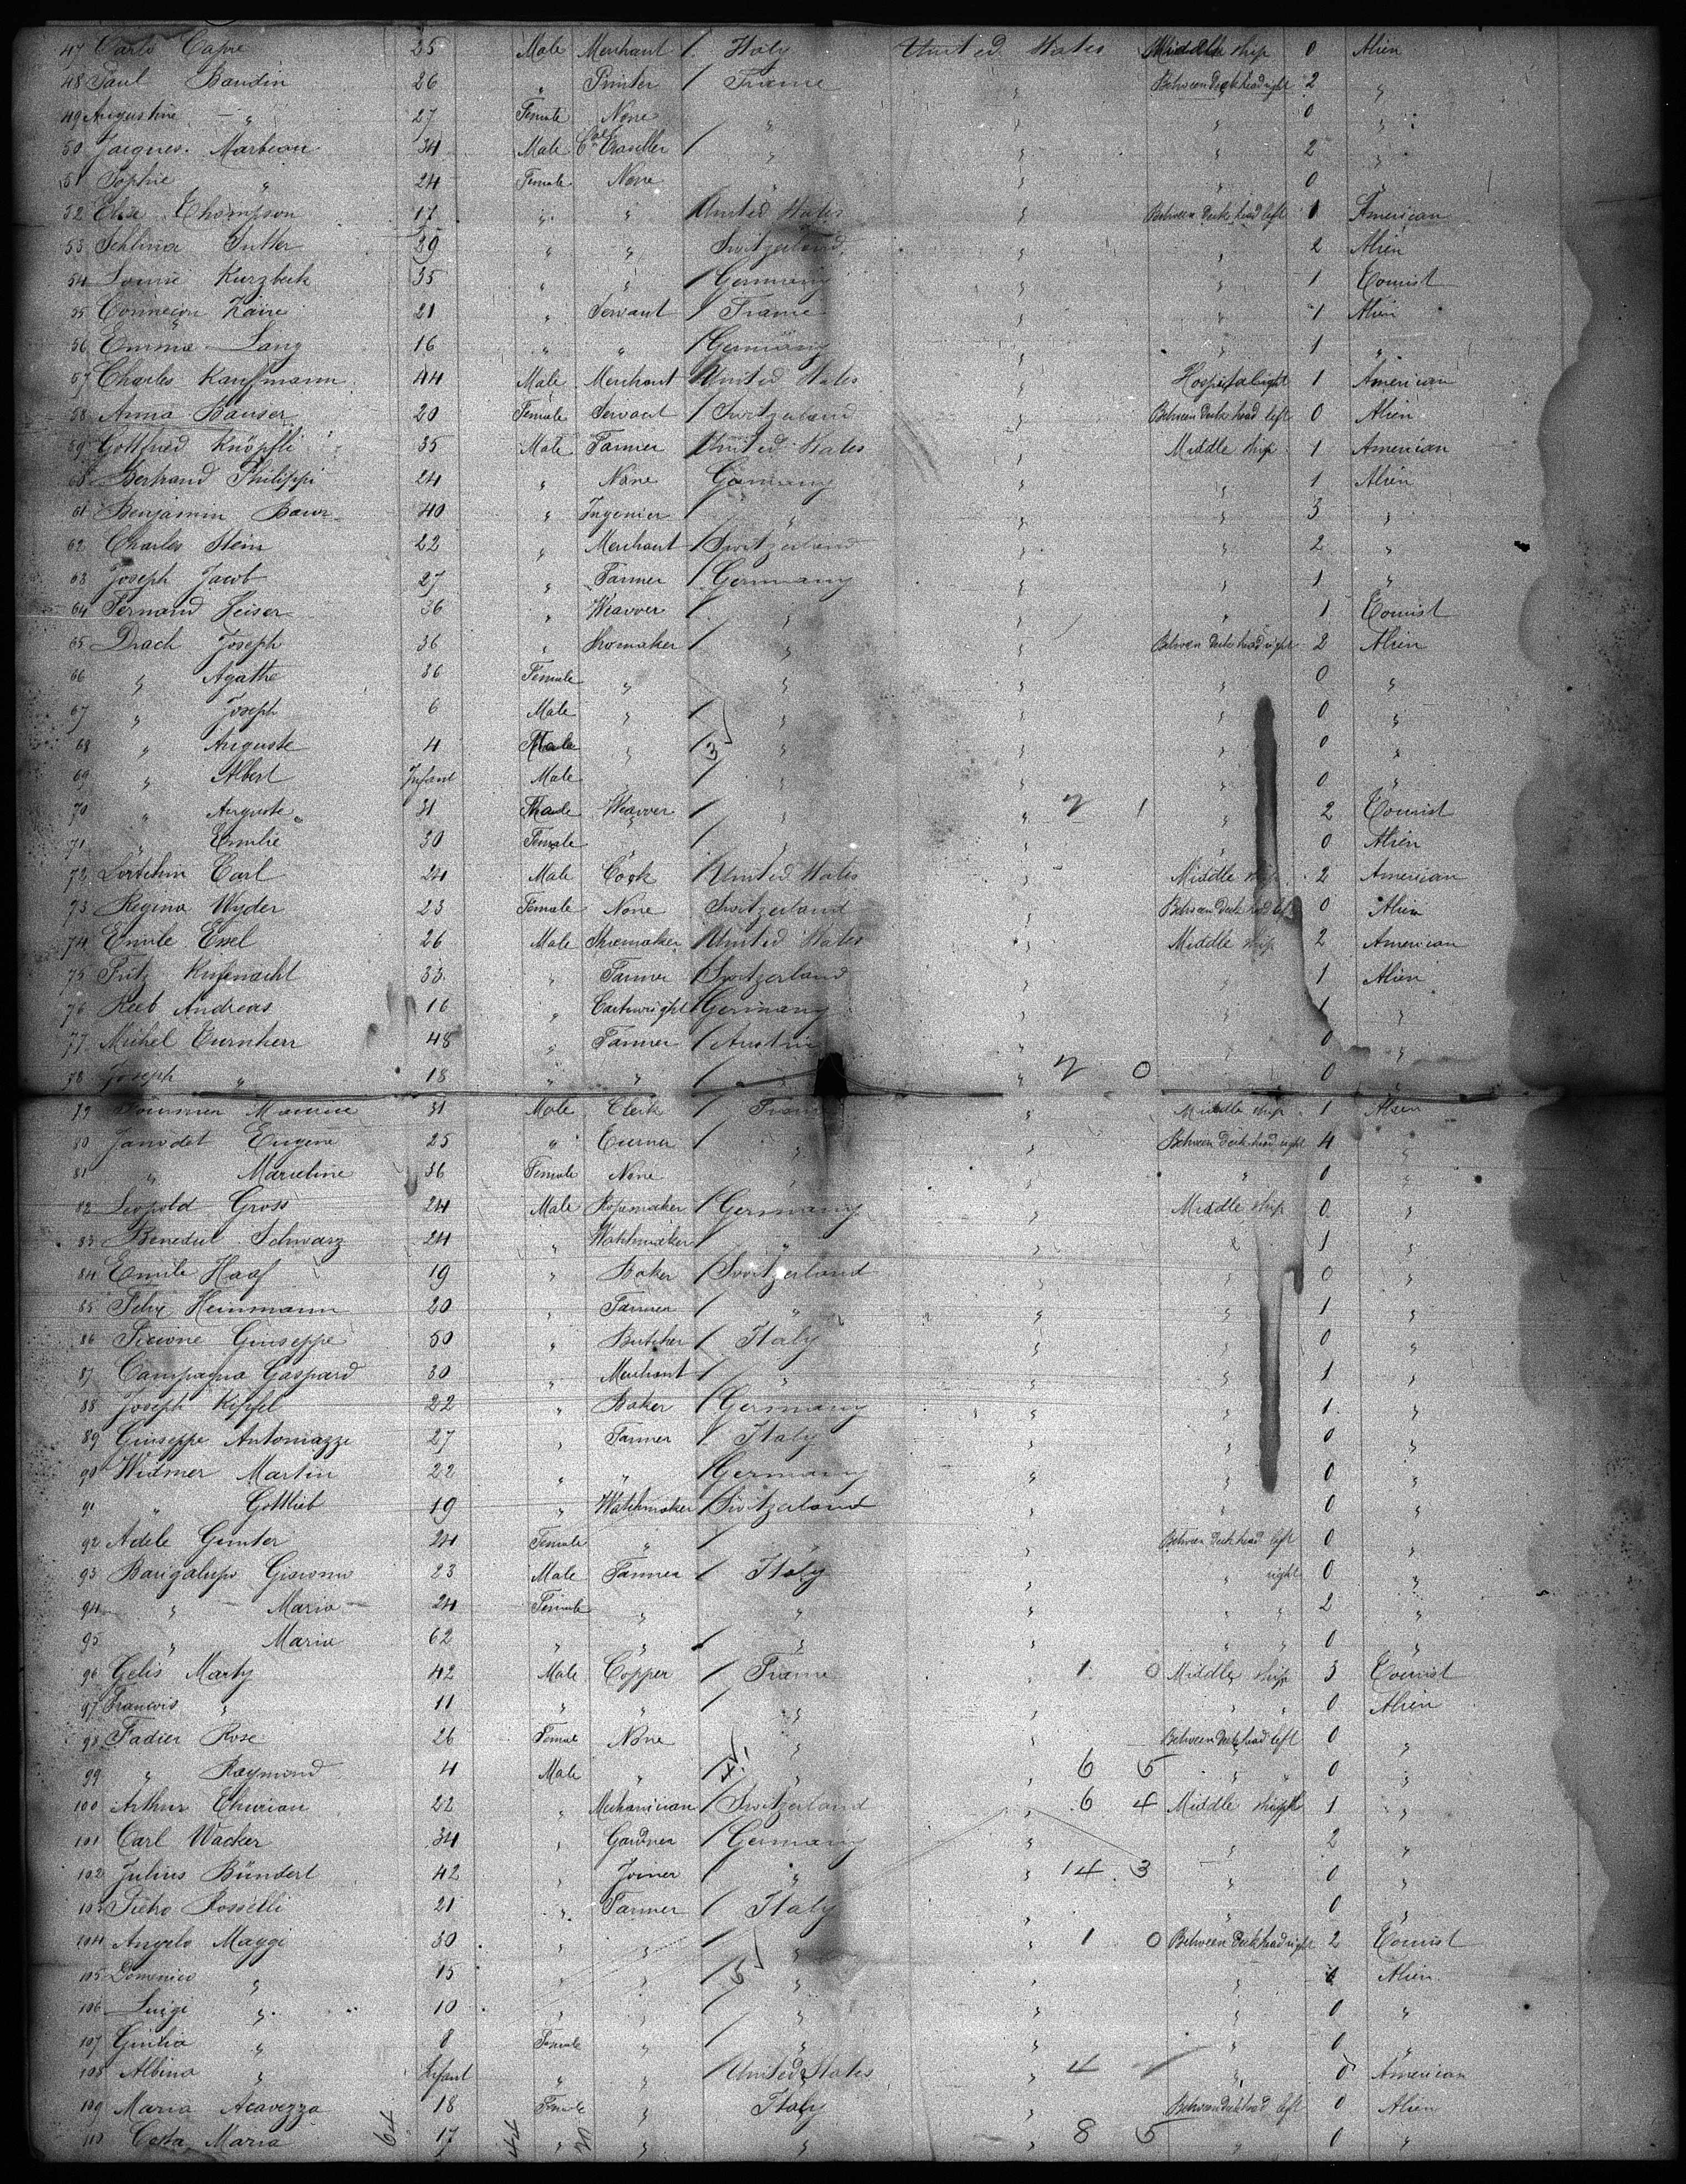 47 Carlo Capre 25 Male Merchant / Italy United States Middle ship 0 Alien
48 Paul Baudin 26 " Printer / France " Between deck head right 2 "
49 Augustine — " 27 Female None " " " 0 "
50 Jacques Marbeau 34 Male / " " " 2 "
51 Sophie " 24 Female None " " 0 "
52 Elise Thompson 17 " " United States " Between deck head left 1 American
53 Sutter 39 " " Switzerland " " 2 Alien
54 Louise Kurzbeck 35 " " / Germany " " 1 Tourist
55 21 " Servant / France " " 1 Alien
56 Emma Lang 16 " " / Germany " " 1 "
57 Charles Kauffmann 44 Male Merchant United States " Hospital right 1 American
58 Anna Bauser 20 Female Servant / Switzerland " Between deck head left 0 Alien
59 Gottfried Knöpfli 35 Male Farmer United States " Middle ship 1 American
60 Bertrand Philippi 24 " None Germany " " 1 Alien
61 Benjamin Baur 40 " Ingenier / " " " 3 "
62 Charles Stein 22 " Merchant / Switzerland " " 2 "
63 Joseph Jacob 27 " Farmer / Germany " " 1 "
64 Fernand Heiser 36 " Weavver / " " " 1 Tourist
65 Drach Joseph 36 " Shomaker / " " Between deck head right 2 Alien
66 " Agathe 36 Female " " " " 0 "
67 " Joseph 6 Male " / " " " 0 "
68 " Auguste 4 Male " / 3 " " " 0 "
69 " Albert Infant Male / " " " 0 "
70 " Auguste 31 Male Weavver / " " 2 1 " 2 Tourist
71 " Emilie 30 Female " / " " " 0 Alien
72 Carl 24 Male Cook / United States " Middle ship 2 American
73 Regina Wyder 23 Female None Switzerland " Between deck head left 0 Alien
74 Emile Essel 26 Male Shoemaker United States " Middle ship 2 American
75 Fritz 33 " Farmer / Switzerland " " 1 Alien
76 Reeb Andreas 16 " Cartwright / Germany " " 1 "
77 Michel Turnherr 48 " Farmer / Austria " " 0 "
78 Joseph " 18 " " / " " 2 0 0 "
79 31 Male Clerk / France " Middle ship 1 Alien
80 Janodet Eugene 25 " Turner / " " Between deck head right 4 "
81 " 36 Female None " " " 0 "
82 Leopold Gross 24 Male Ropemaker / Germany " Middle ship 0 "
83 Benedict Schwarz 24 " Watchmaker / " " " 1 "
84 Emile Haaf 19 " Baker / Switzerland " " 0 "
85 Felix Heinmann 20 " Farmer / " " " 1 "
86 Giuseppe 50 " Butcher / Italy " " 0 "
87 Campagna Gaspard 30 " Merchant / " " " 1 "
88 Joseph Kipfel 22 " Baker / Germany " " 1 "
89 Giuseppe Antoniazzi 27 " Farmer / Italy " " 0 "
90 Widmer Martin 22 " " / Germany " " 0 "
91 " Gottlieb 19 " Watchmaker / Switzerland " " 0 "
92 Adele Gunter 24 Female " / " " Between deck head left 0 "
93 Barigalupo Giacomo 23 Male Farmer / Italy " " right 0 "
94 " — Maria 24 Female " " " " " 2 "
95 " Maria 62 " " / " " " " 0 "
96 Gelis Marty 42 Male Copper / France " 1 0 Middle ship 3 Tourist
97 Francois " 11 " " / " " " " 0 Alien
98 Fadier Rose 26 Female None " " Between deck head left 0 "
99 " Raymond 4 Male " / " " 6 5 " " 0 "
100 Arthur 22 " Mechanician / Switzerland " 6 4 Middle ship 1 "
101 Carl Wacker 34 " Gardner / Germany " " 2 "
102 Julius Bündert 42 " Joiner / " " 14 3 " 0 "
103 Pietro Rosselli 21 " Farmer / Italy " " 0 "
104 Angelo Maggi 30 " " / " " 1 0 Between deck head right 2 Tourist
105 Domenico " 15 " " / " " " 0 Alien
106 Luigi " 10 " " / " " " 0 "
107 Giulia " 8 Female " / " " " 0 "
108 Albina " Infant " " / United States " 4 " 0 American
109 Maria Acavezza 18 Female " Italy " Between deck head left 0 Alien
110 Costa Maria 64 17 44 20 " " " " 8 5 " 0 "